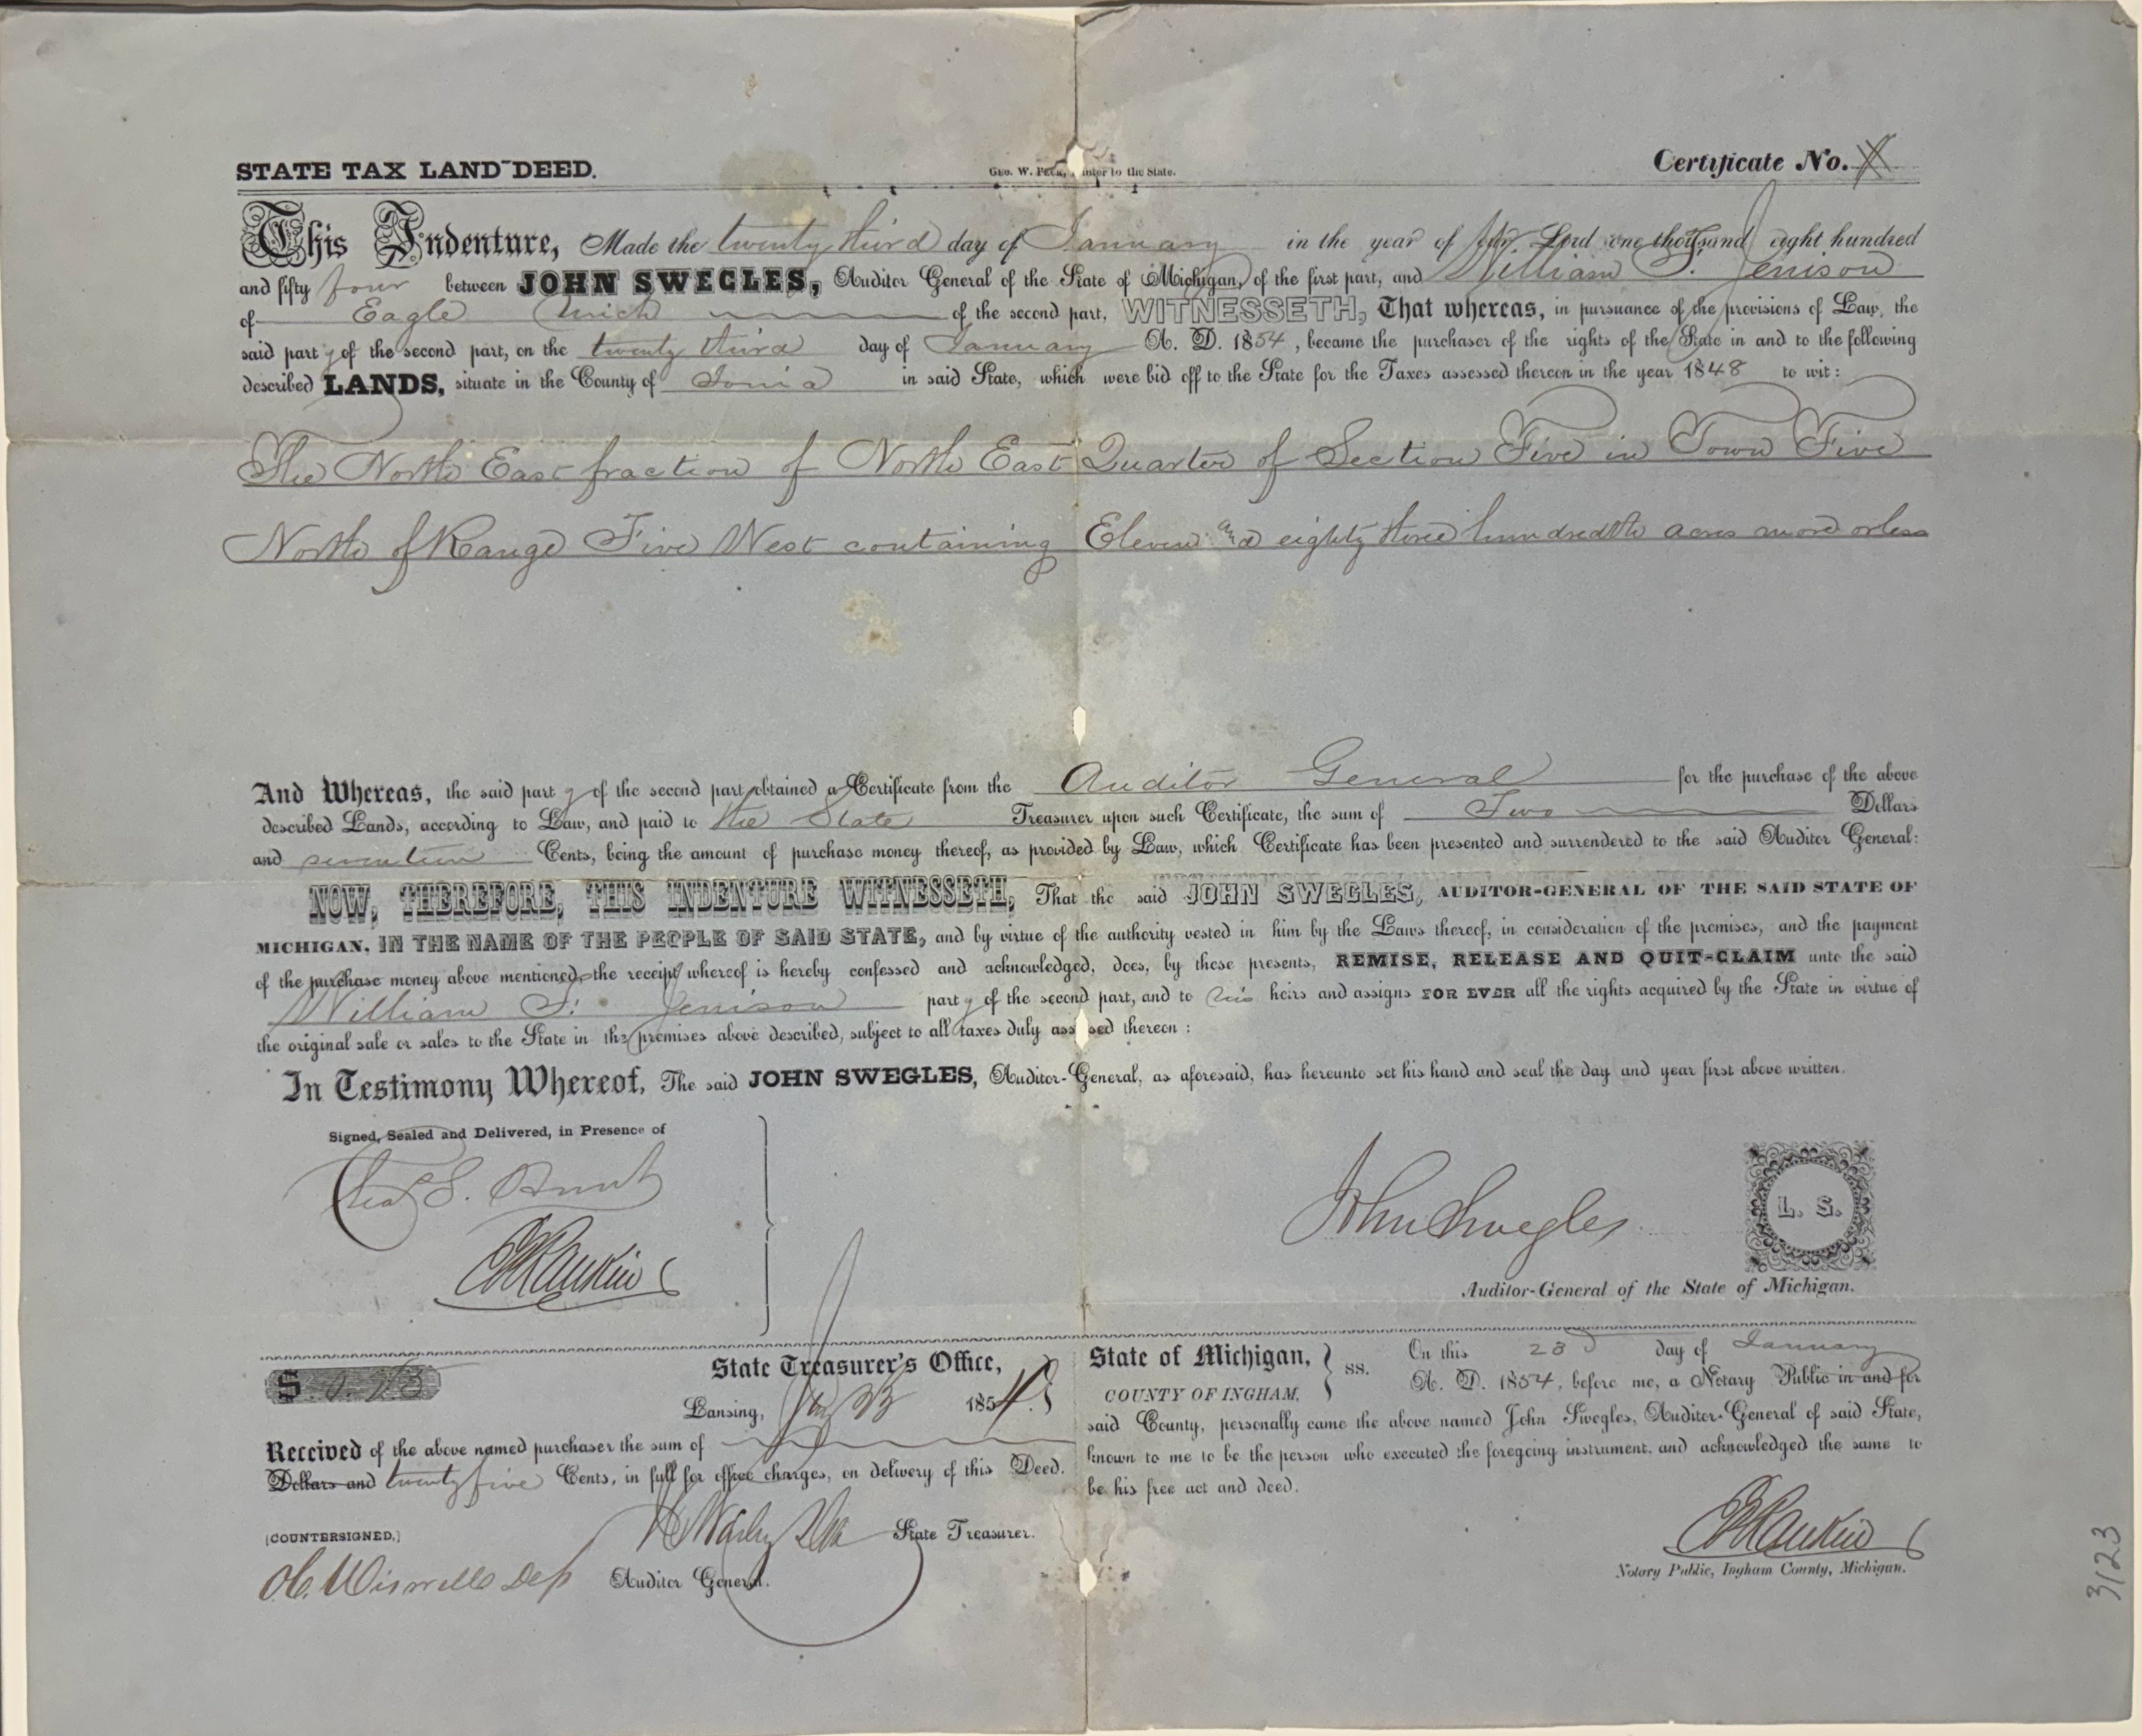 STATE TAX LAND DEED.
Geo. W. Peck, Printer to the State.
Certificate No. X
This Indenture, Made the twenty third day of January in the year of our Lord one thousand eight hundred
and fifty four between JOHN SWEGLES, Auditor General of the State of Michigan, of the first part, and William F. Jenison
of Eagle Mich of the second part, WITNESSETH, That whereas, in pursuance of the provisions of Law, the
said party of the second part, on the twenty third day of January A. D. 1854, became the purchaser of the rights of the State in and to the following
described LANDS, situate in the County of Ionia in said State, which were bid off to the State for the Taxes assessed thereon in the year 1848 to wit:
The North East fraction of North East Quarter of Section Five in Town Five
North of Range Five West containing Eleven and eighty three hundredth acres more or less
And Whereas, the said party of the second part obtained a Certificate from the Auditor General for the purchase of the above
described Lands, according to Law, and paid to the State Treasurer upon such Certificate, the sum of Two Dollars
and seventeen Cents, being the amount of purchase money thereof, as provided by Law, which Certificate has been presented and surrendered to the said Auditor General:
NOW, THEREFORE, THIS INDENTURE WITNESSETH, That the said JOHN SWEGLES, AUDITOR-GENERAL OF THE SAID STATE OF
MICHIGAN, IN THE NAME OF THE PEOPLE OF SAID STATE, and by virtue of the authority vested in him by the Laws thereof, in consideration of the premises, and the payment
of the purchase money above mentioned, the receipt whereof is hereby confessed and acknowledged, does, by these presents, REMISE, RELEASE AND QUIT-CLAIM unto the said
William F. Jenison party of the second part, and to his heirs and assigns FOR EVER all the rights acquired by the State in virtue of
the original sale or sales to the State in the premises above described, subject to all taxes duly assessed thereon:
In Testimony Whereof, The said JOHN SWEGLES, Auditor-General, as aforesaid, has hereunto set his hand and seal the day and year first above written.
Signed, Sealed and Delivered, in Presence of
Chas S. Hunt
John Swegles
L. S.
Auditor-General of the State of Michigan.
$
State Treasurer's Office,
Lansing, Jan 23 1854
Received of the above named purchaser the sum of
Dollars and twenty five Cents, in full for office charges, on delivery of this Deed.
State Treasurer.
(COUNTERSIGNED,)
Wiswell Dep Auditor General.
State of Michigan, } ss. On this 23d day of January
COUNTY OF INGHAM, A. D. 1854, before me, a Notary Public in and for
said County, personally came the above named John Swegles, Auditor-General of said State,
known to me to be the person who executed the foregoing instrument, and acknowledged the same to
be his free act and deed.
Notary Public, Ingham County, Michigan.
3123